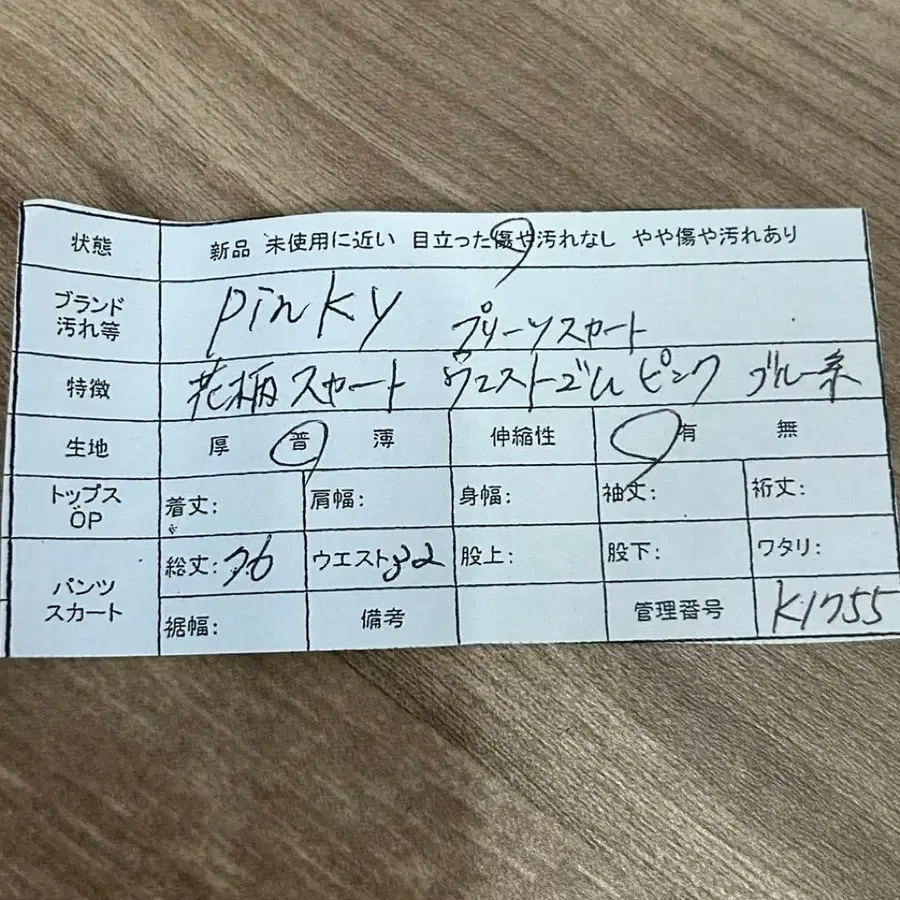 状態 新品 未使用に近い 目立った傷や汚れなし やや傷や汚れあり
ブランド
汚れ等
pinky プリーツスカート
特徴 花柄スカート ウエストゴム ピンク ブルー系
生地 厚 普 薄 伸縮性 有 無
トップス
OP
着丈: 肩幅: 身幅: 袖丈: 裄丈:
パンツ
スカート
総丈:76 ウエスト32 股上: 股下: ワタリ:
裾幅: 備考 管理番号 K1755